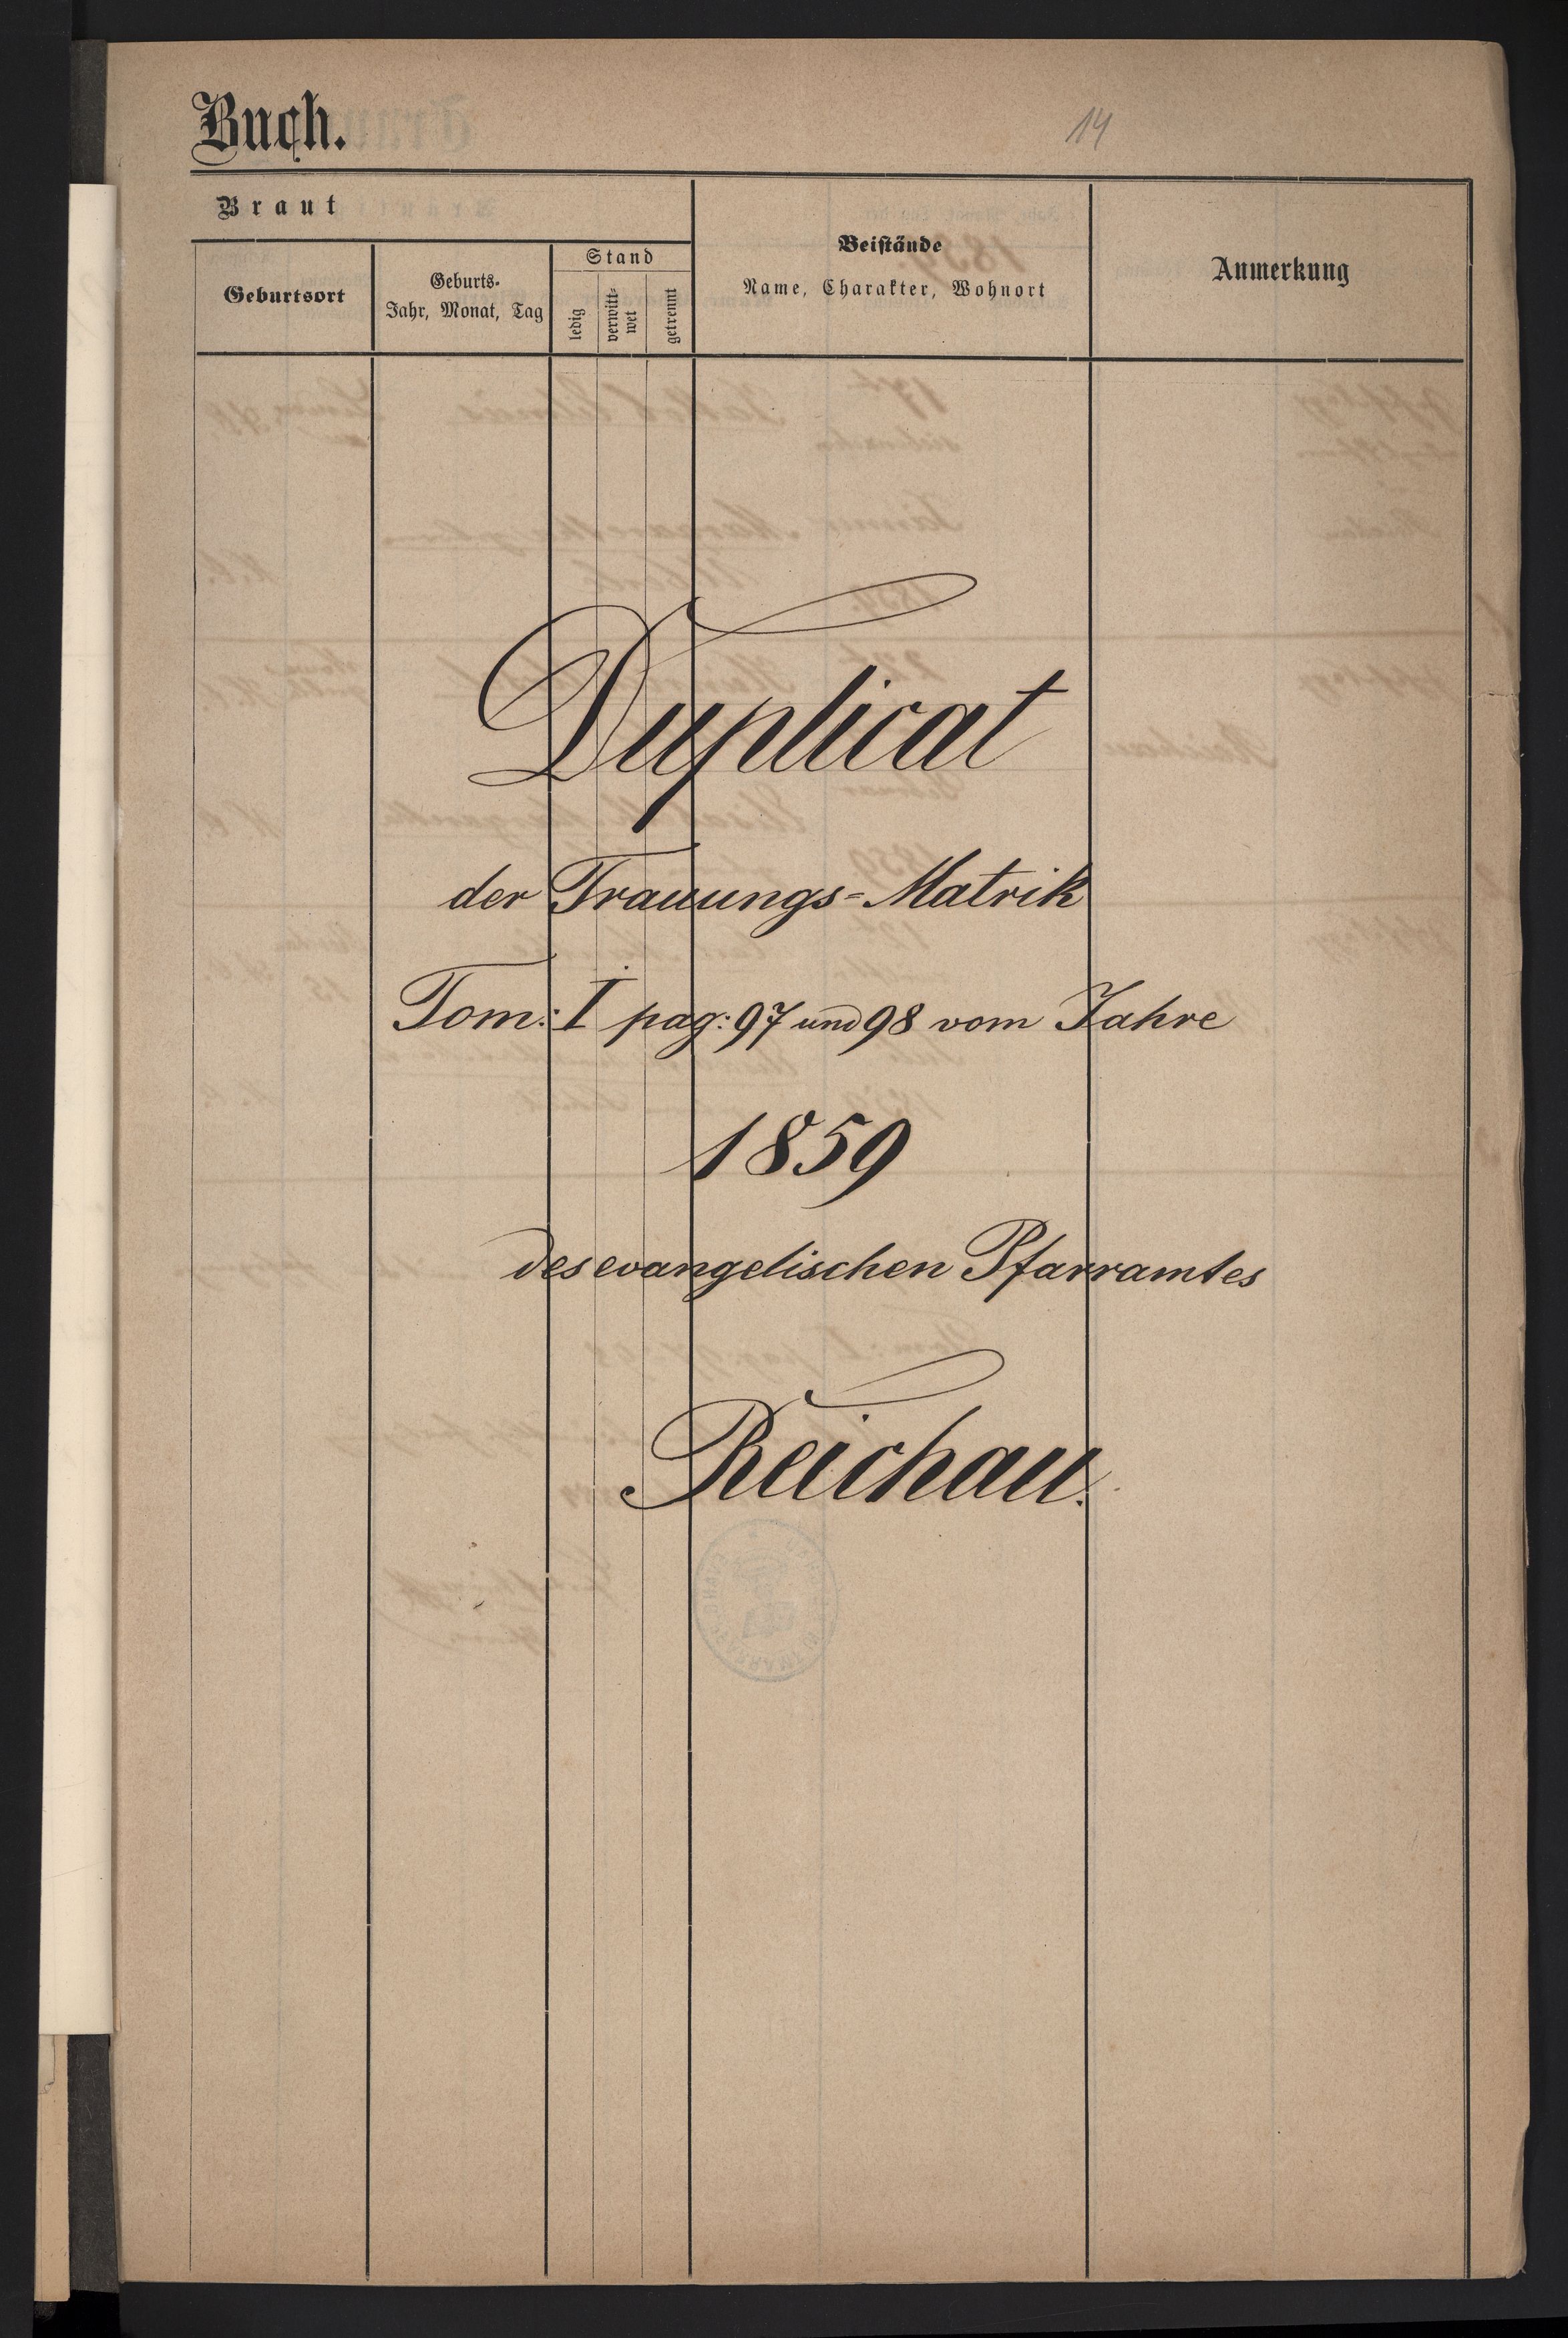 Buch.
14
Braut
Geburtsort
Geburts-
Jahr, Monat, Tag
Stand
ledig
verwitt-
wet
getrennt
Beistände
Name, Charakter, Wohnort
Anmerkung
Duplicat
der Trauungs-Matrik
Tom: I pag: 97 und 98 vom Jahre
1859
des evangelischen Pfarramtes
Reichau.